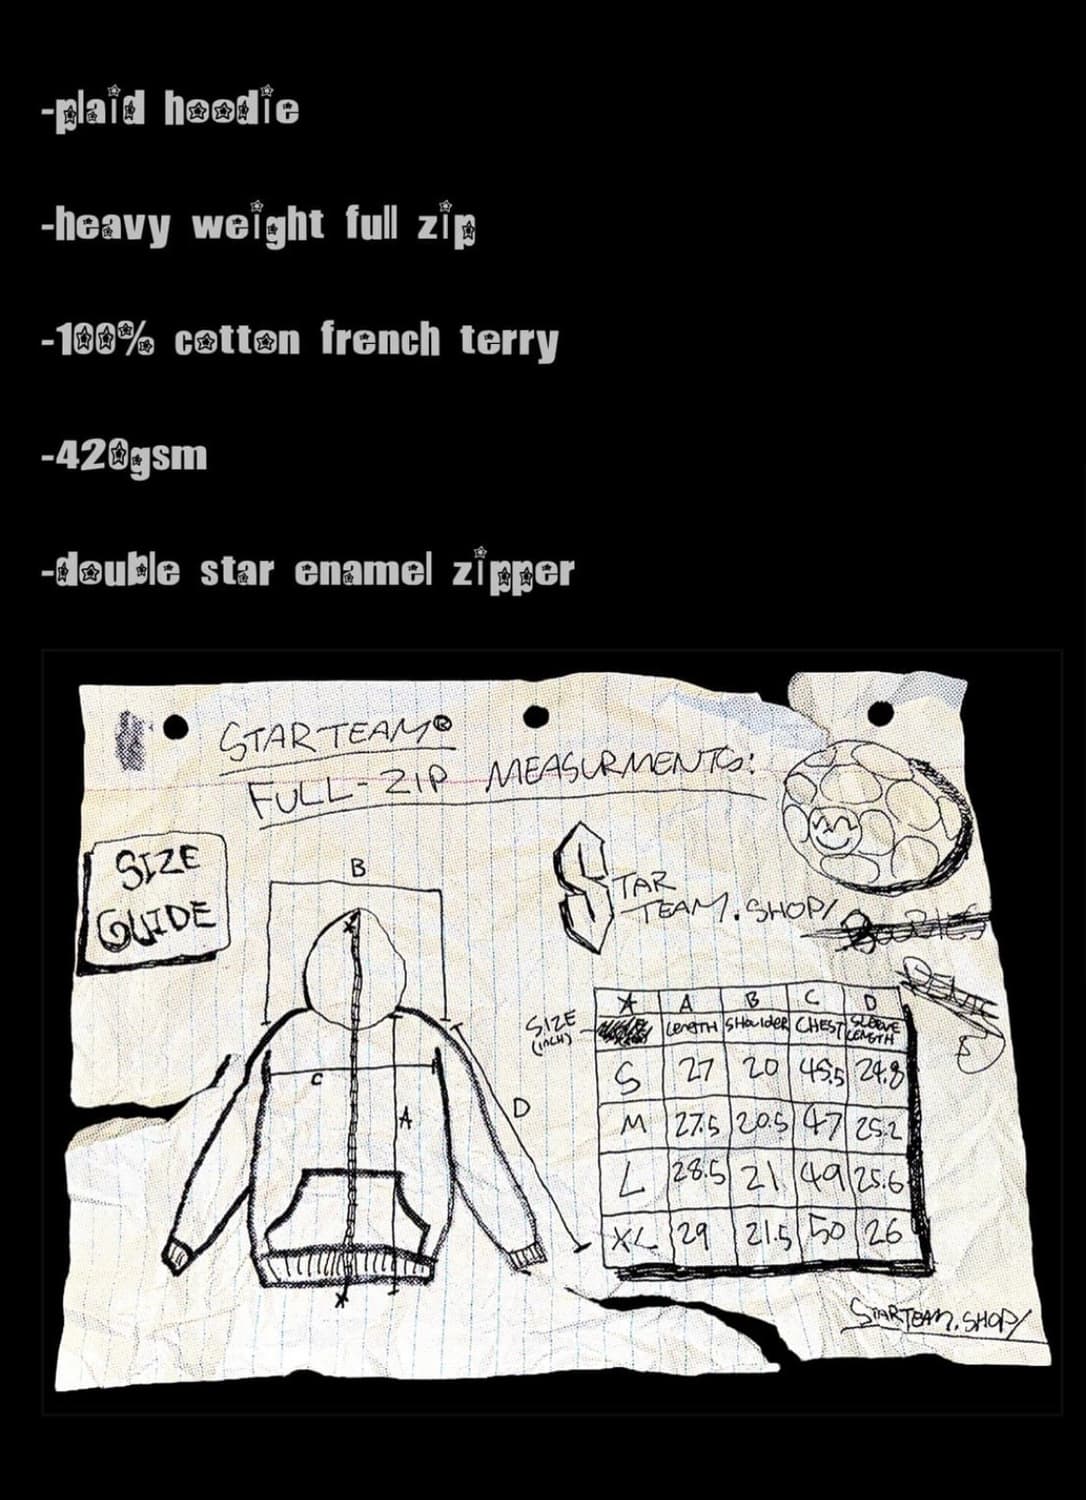 -plaid hoodie
-heavy weight full zip
-100% cotton french terry
-420gsm
-double star enamel zipper
STARTEAM®
FULL-ZIP MEASURMENTS:
SIZE
GUIDE
B
STAR
TEAM.SHOP/
C
A
D
SIZE
(INCH)
A B C D
LENGTH SHOULDER CHEST SLEEVE LENGTH
S 27 20 45.5 24.8
M 27.5 20.5 47 25.2
L 28.5 21 49 25.6
XL 29 21.5 50 26
STARTEAM.SHOP/